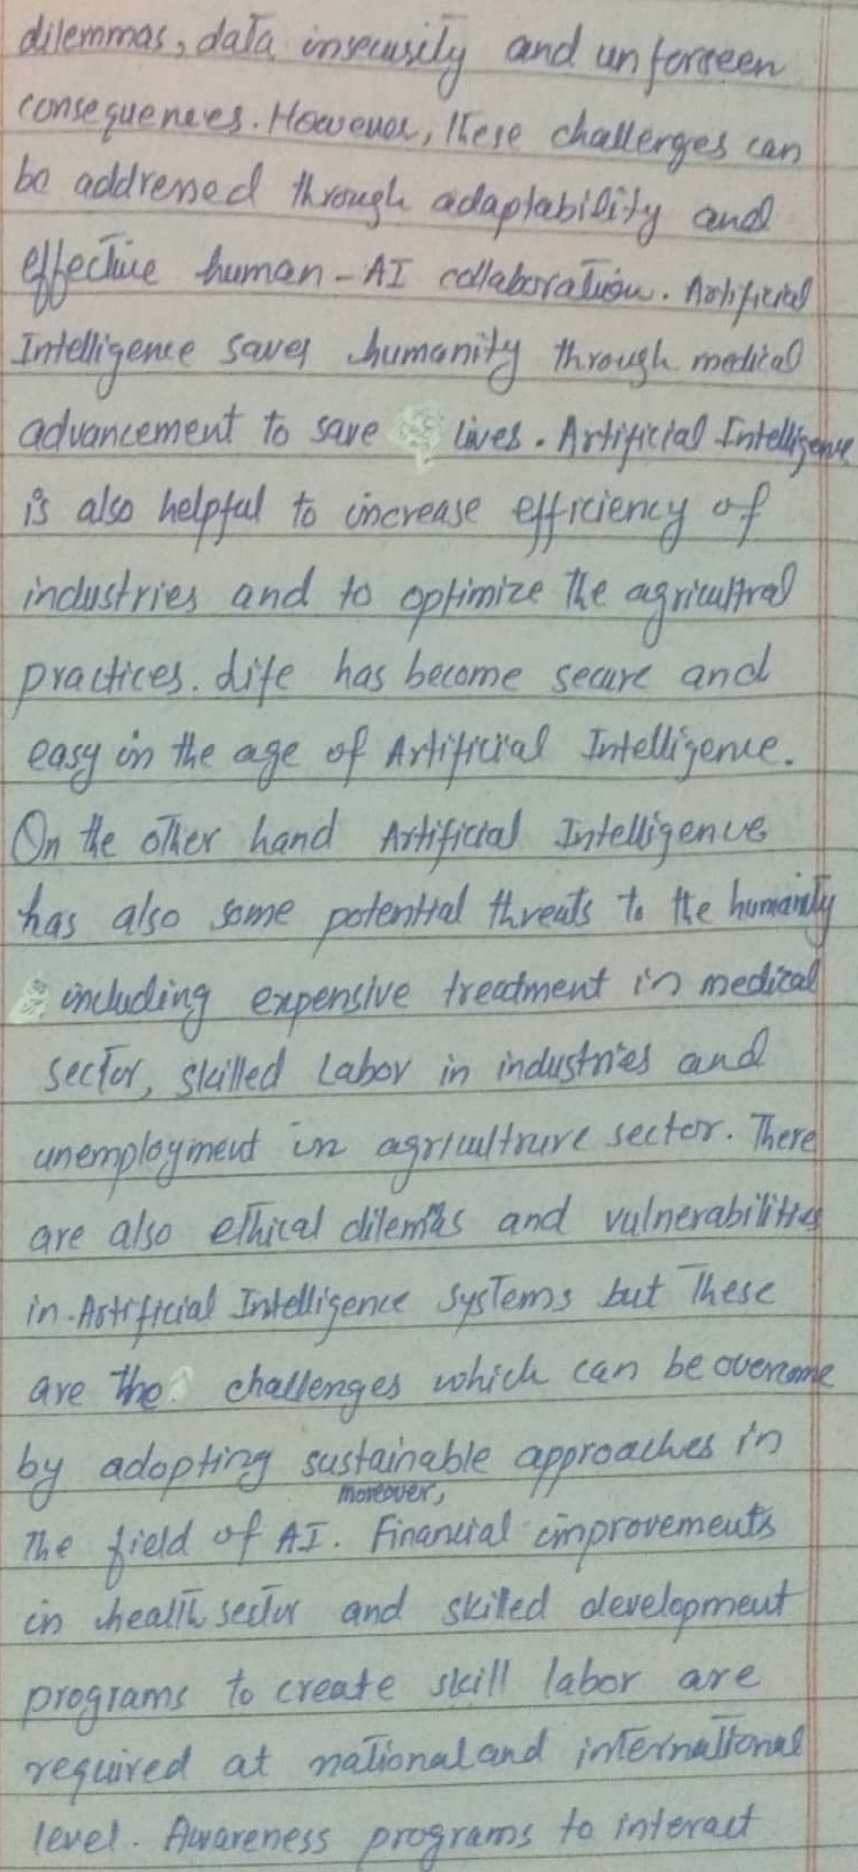 dilemmas, data insecurity and unforseen
consequences. However, these challenges can
be addressed through adaptability and
effective human-AI collaboration. Artificial
Intelligence saves humanity through medical
advancement to save lives. Artificial Intelligence
is also helpful to increase efficiency of
industries and to optimize the agricultral
practices. Life has become secure and
easy in the age of Artificial Intelligence.
On the other hand Artificial Intelligence
has also some potential threats to the humanity
including expensive treatment in medical
sector, skilled Labor in industries and
unemployment in agricultrure sector. There
are also ethical dilemmas and vulnerabilities
in Artificial Intelligence systems but These
are the challenges which can be overcome
by adopting sustainable approaches in
moreover,
The field of AI. Financial improvements
in health sector and skilled development
programs to create skill labor are
required at national and international
level. Awareness programs to interact